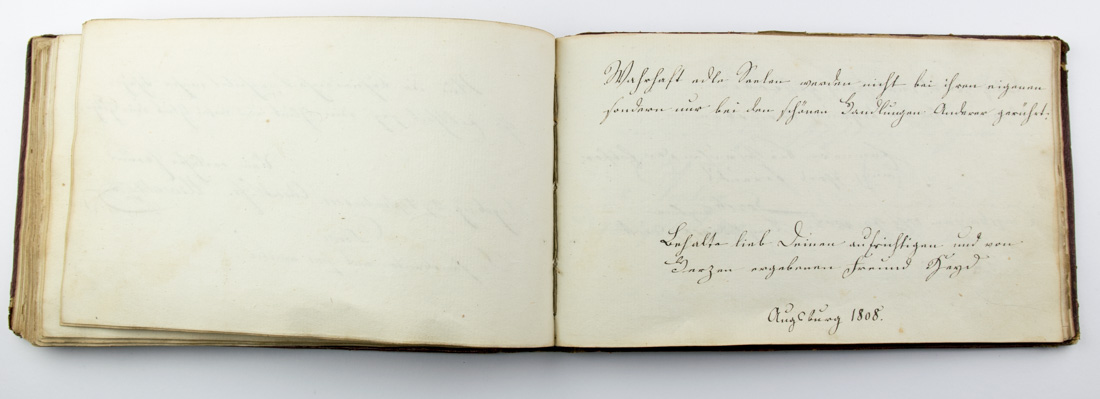 Wahrhaft edle Seelen werden nicht bei ihren eigenen
sondern nur bei den schönen Handlungen Anderer gerührt.
Behalte lieb Deinen aufrichtigen und von
Herzen ergebenen Freund Heyd
Augsburg 1808.